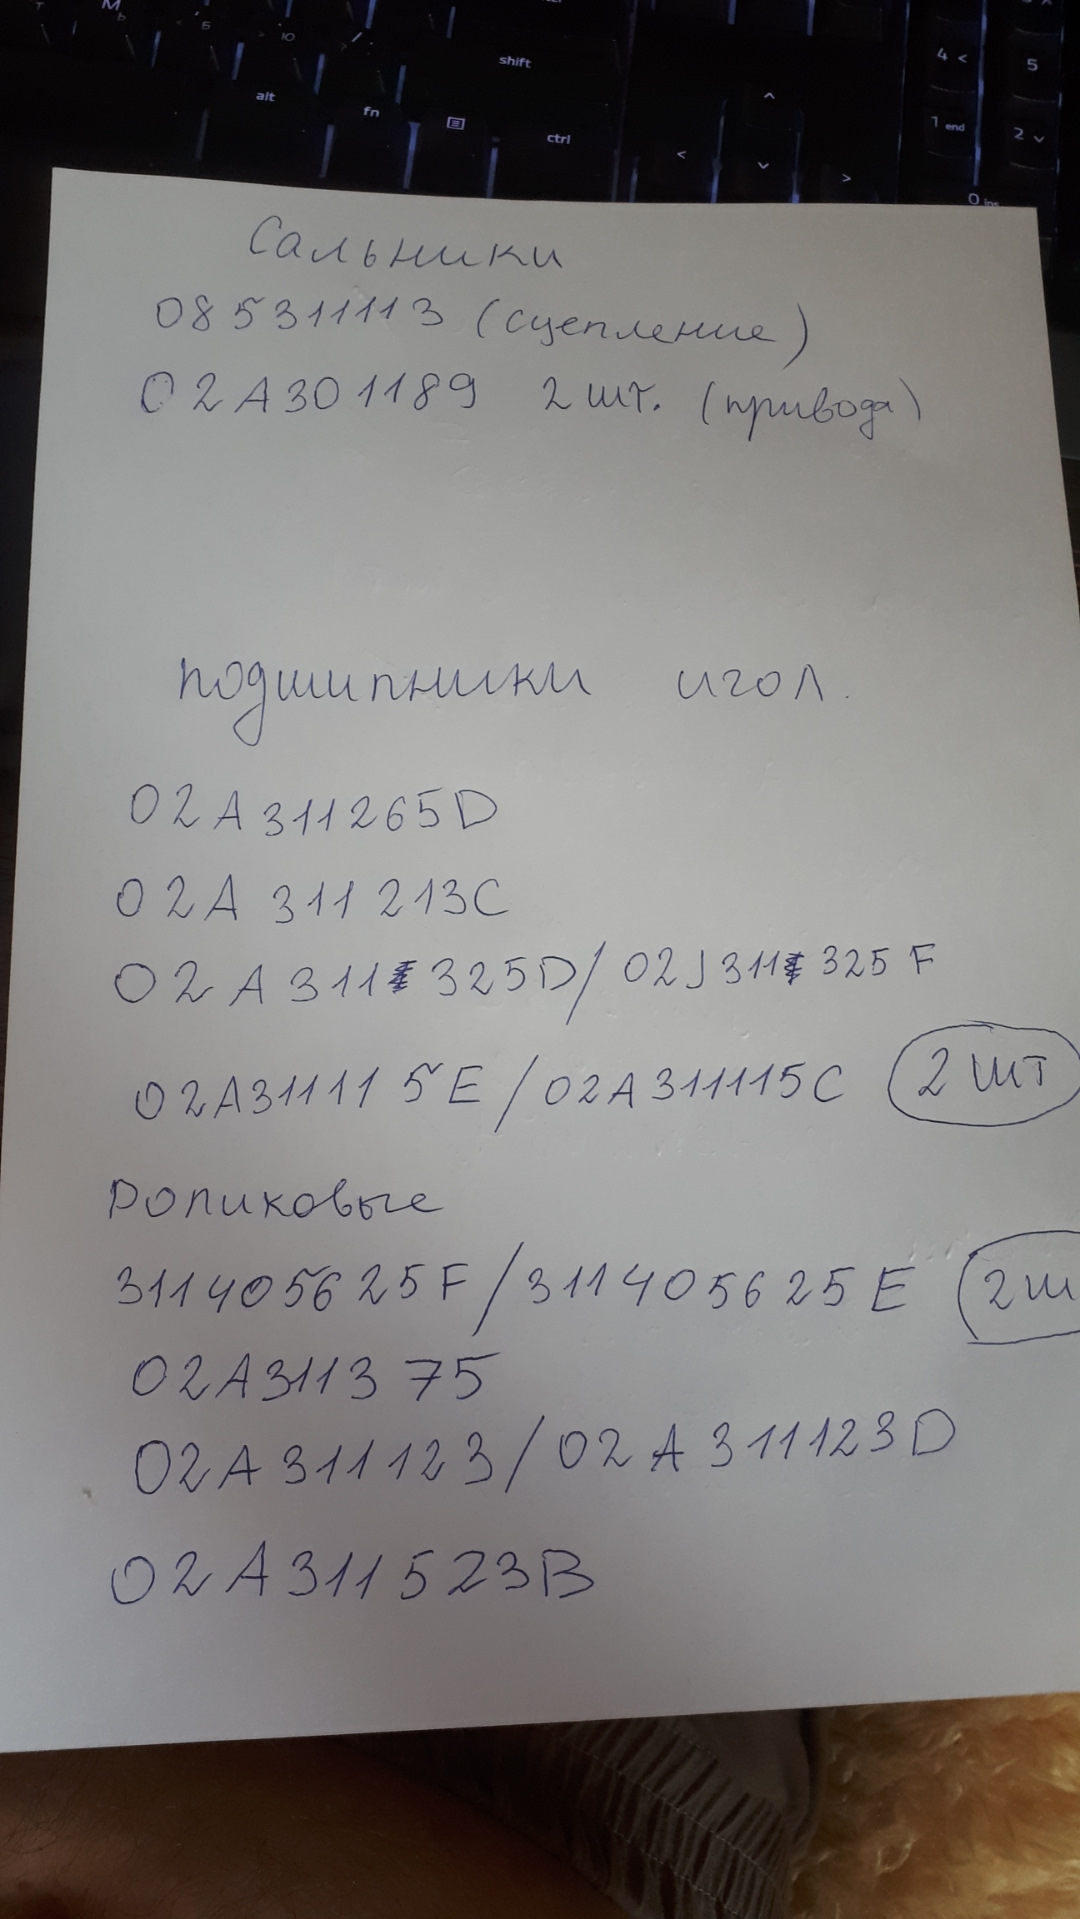 shift
alt
fn
ctrl
4 <
5
1 end
2
0 ins
Сальники
085311113 (сцепление)
02A301189 2 шт. (привода)
подшипники игол.
02A311265D
02A 311 213C
02A311 325D/02J311 325F
02A311115E/02A311115C 2 шт
Роликовые
311405625F/311405625E 2 ш
02A311375
02A311123/02A311123D
02A311523B